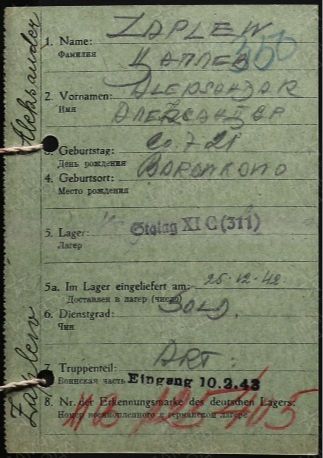 1. Name: ZAPLEW
Фамилия ЦАПЛЕВ
2. Vornamen: ALEKSANDAR
Имя АЛЕКСАНДЕР
3. Geburtstag:
День рождения
4. Geburtsort:
Место рождения
5. Lager: Stalag XI C (311)
Лагерь
5a. Im Lager eingeliefert am: 25-12-42.
Доставлен в лагерь (число)
6. Dienstgrad: SOLD.
Чин
7. Truppenteil: ART.
Воинская часть Eingang 10.2.43
8. Nr. der Erkennungsmarke des deutschen Lagers:
Номер военнопленного в германском лагере
Aleksander
Zaplew